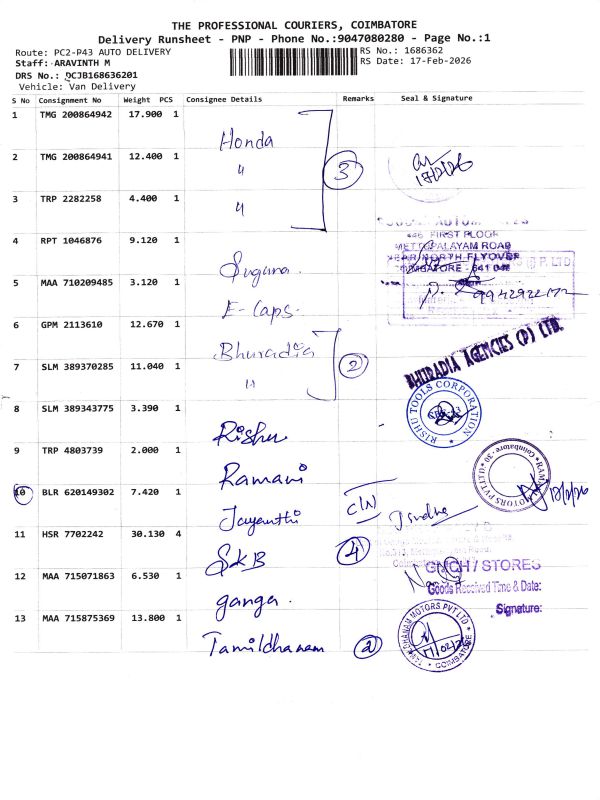 THE PROFESSIONAL COURIERS, COIMBATORE
Delivery Runsheet - PNP - Phone No.:9047080280 - Page No.:1
Route: PC2-P43 AUTO DELIVERY
RS No.: 1686362
Staff: ARAVINTH M
RS Date: 17-Feb-2026
DRS No.: DCJB168636201
Vehicle: Van Delivery
S No Consignment No Weight PCS Consignee Details Remarks Seal & Signature
1 TMG 200864942 17.900 1 Honda
2 TMG 200864941 12.400 1 " 3
17/2/26
3 TRP 2282258 4.400 1 "
FIRST FLOOR
METTUPALAYAM ROAD
NEAR NORTH FLYOVER
COIMBATORE - 641 043
4 RPT 1046876 9.120 1 Suguna.
5 MAA 710209485 3.120 1 E-Caps.
6 GPM 2113610 12.670 1 Bhuradia 2
BHURADIA AGENCIES (P) LTD.
7 SLM 389370285 11.040 1 "
8 SLM 389343775 3.390 1 Rishu
RISHU TOOLS CORPORATION
9 TRP 4803739 2.000 1 Ramani
RAMANI MOTORS PVT LTD Coimbatore - 30
10 BLR 620149302 7.420 1 Jayanthi C/N
11 HSR 7702242 30.130 4 SKB 4
GMCH / STORES
Goods Received Time & Date:
Signature:
12 MAA 715071863 6.530 1 ganga.
13 MAA 715875369 13.800 1 Tamildhanam 2
TAMILDHANAM MOTORS PVT LTD COIMBATORE
17/02/26